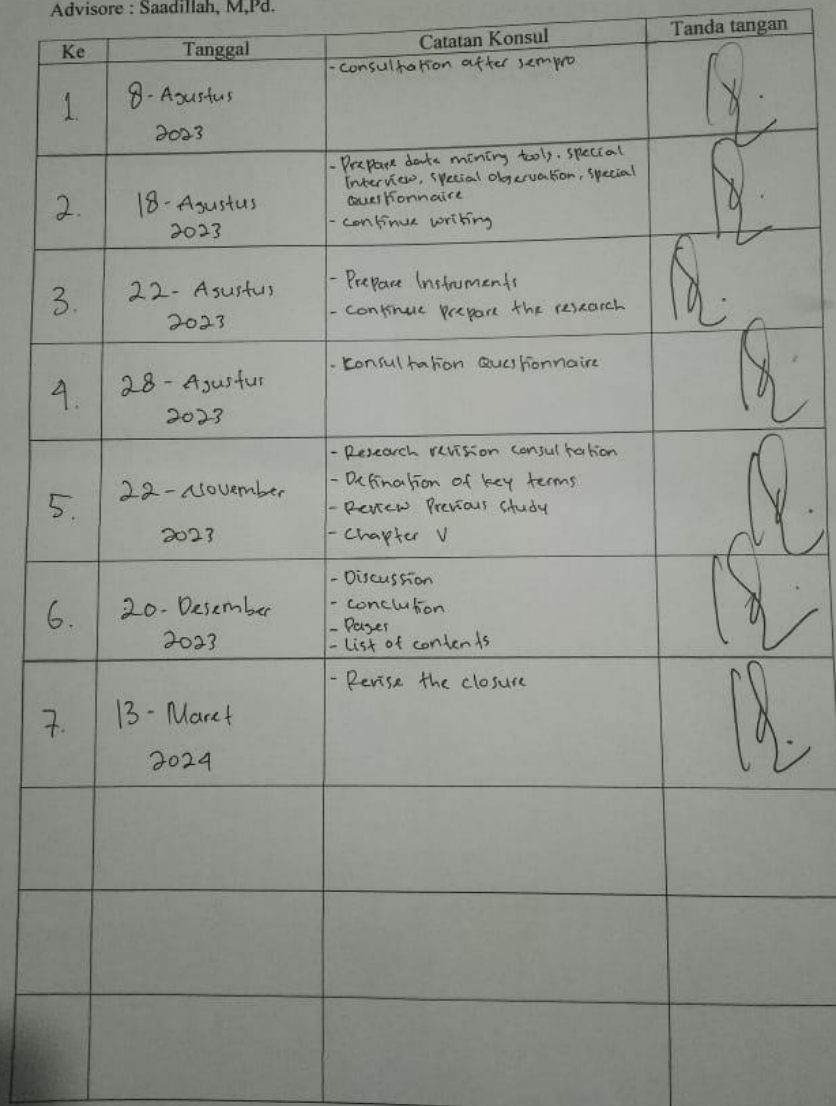 Advisore : Saadillah, M,Pd.
Ke Tanggal Catatan Konsul Tanda tangan
1. 8-Agustus 2023
-Consultation after sempro
2. 18-Agustus 2023
- Prepare data mining tools, special
Interview, special observation, special
Questionnaire
- continue writing
3. 22-Agustus 2023
- Prepare Instruments
- Continue prepare the research
4. 28-Agustus 2023
- Konsultation Questionnaire
5. 22-November 2023
- Research revision consultation
- Defination of key terms
- Review Previous study
- Chapter V
6. 20-Desember 2023
- Discussion
- Conclution
- Pages
- List of contents
7. 13-Maret 2024
- Revise the closure